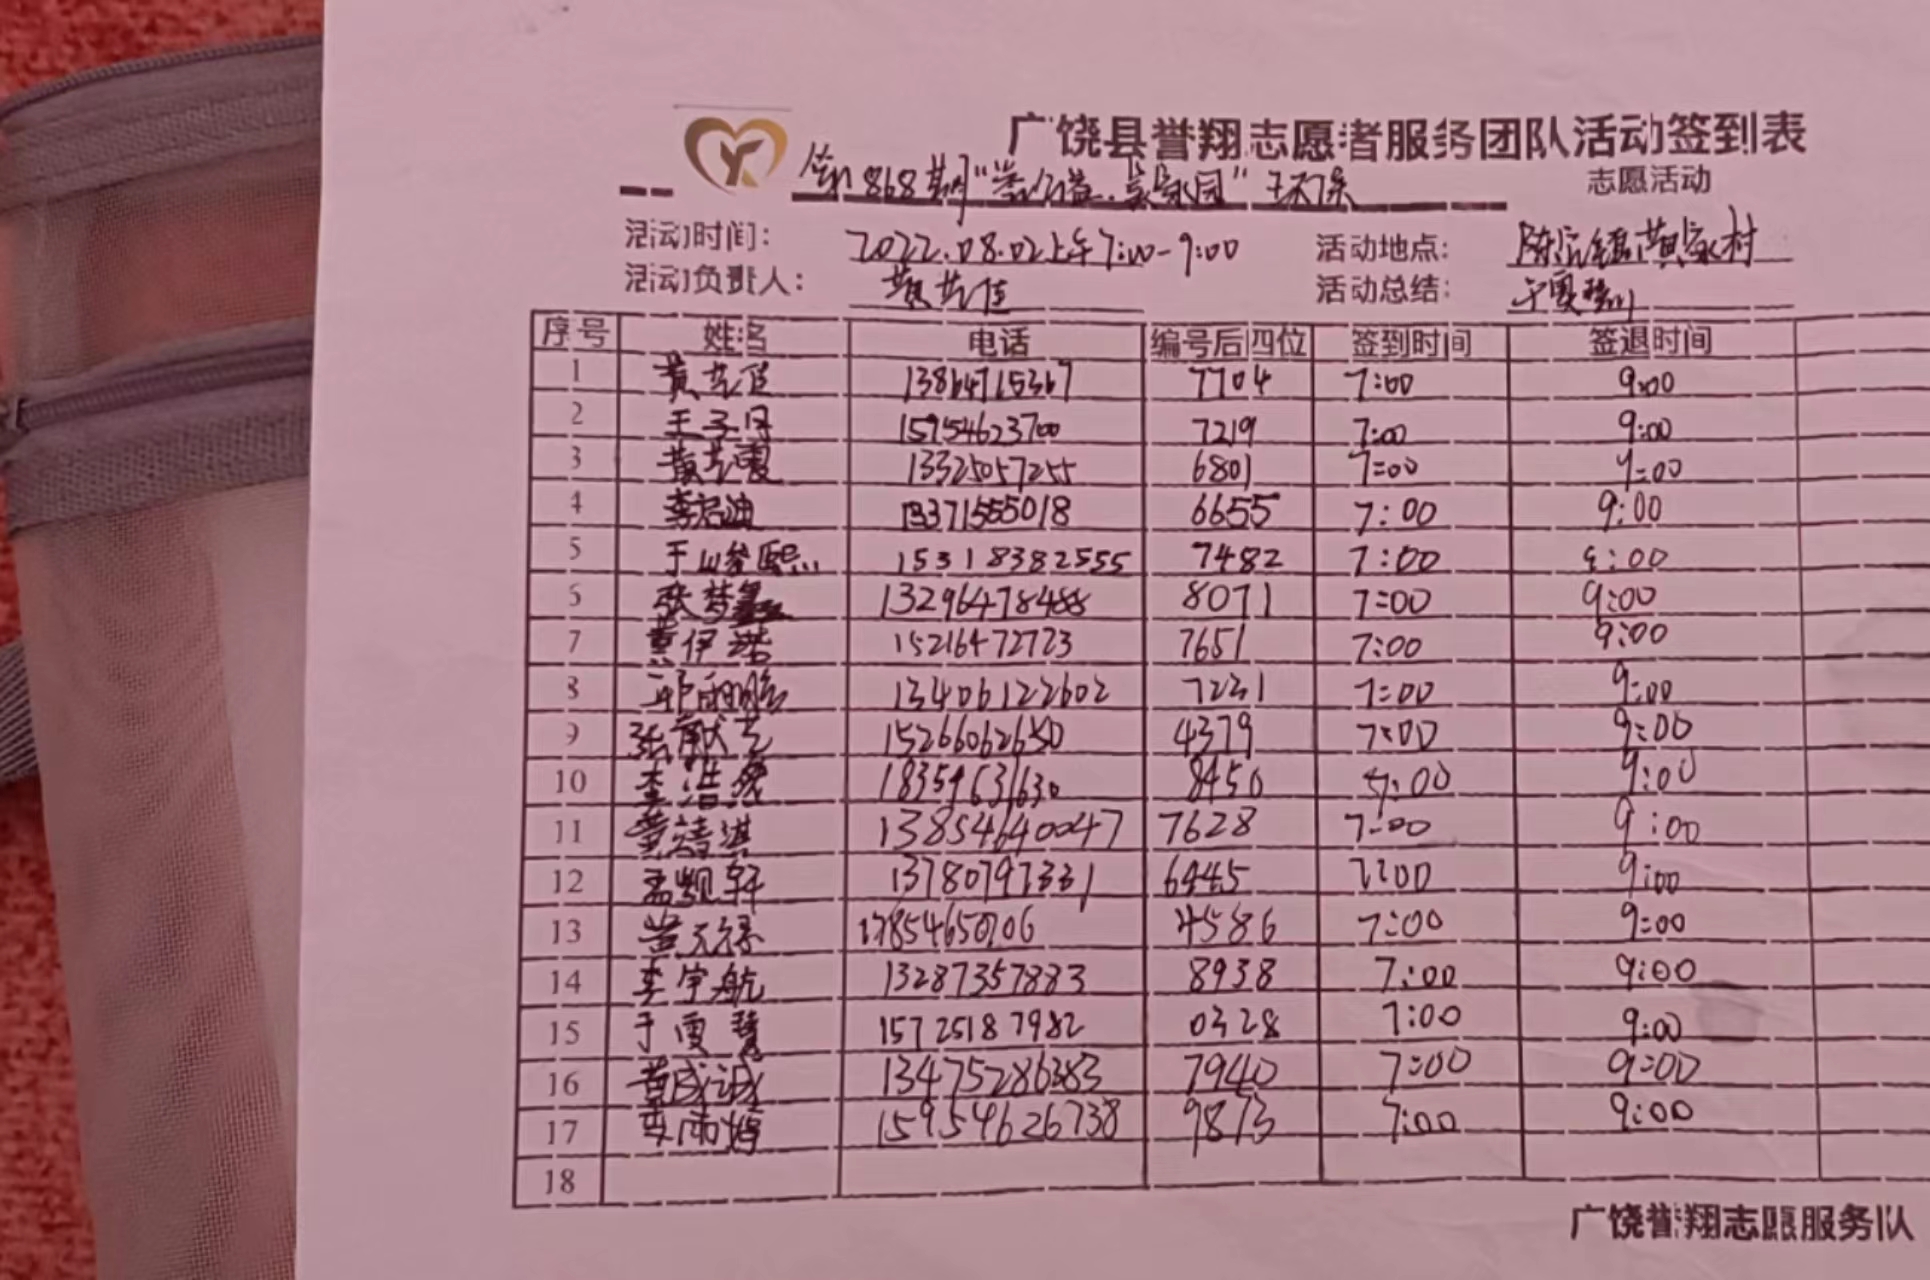 广饶县誉翔志愿者服务团队活动签到表
第868期"益家园"环保 志愿活动
活动时间: 2022.08.02上午7:00-9:00 活动地点: 陈官镇黄家村
活动负责人: 黄艺佳 活动总结: 于雯
序号 姓名 电话 编号后四位 签到时间 签退时间
1 黄艺佳 13864715367 7704 7:00 9:00
2 王子丹 15954623700 7219 7:00 9:00
3 黄艺霞 13325057255 6801 7:00 9:00
4 李启迪 13371555018 6655 7:00 9:00
5 于峻熙 15318382555 7482 7:00 9:00
6 张梦 13296478488 8071 7:00 9:00
7 黄伊诺 15216472723 7651 7:00 9:00
8 13406122602 7231 7:00 9:00
9 张献艺 15266062650 4379 7:00 9:00
10 李浩 18354631630 8450 9:00
11 黄靖淇 13854640047 7628 7:00 9:00
12 孟凯轩 13780797331 6445 7:00 9:00
13 黄元禄 4586 7:00 9:00
14 李宇航 13287357883 8938 7:00 9:00
15 于雯慧 15725187982 0328 7:00 9:00
16 黄成诚 13475286383 7940 7:00 9:00
17 雨婷 15954626738 9873 7:00 9:00
18
广饶誉翔志愿服务队